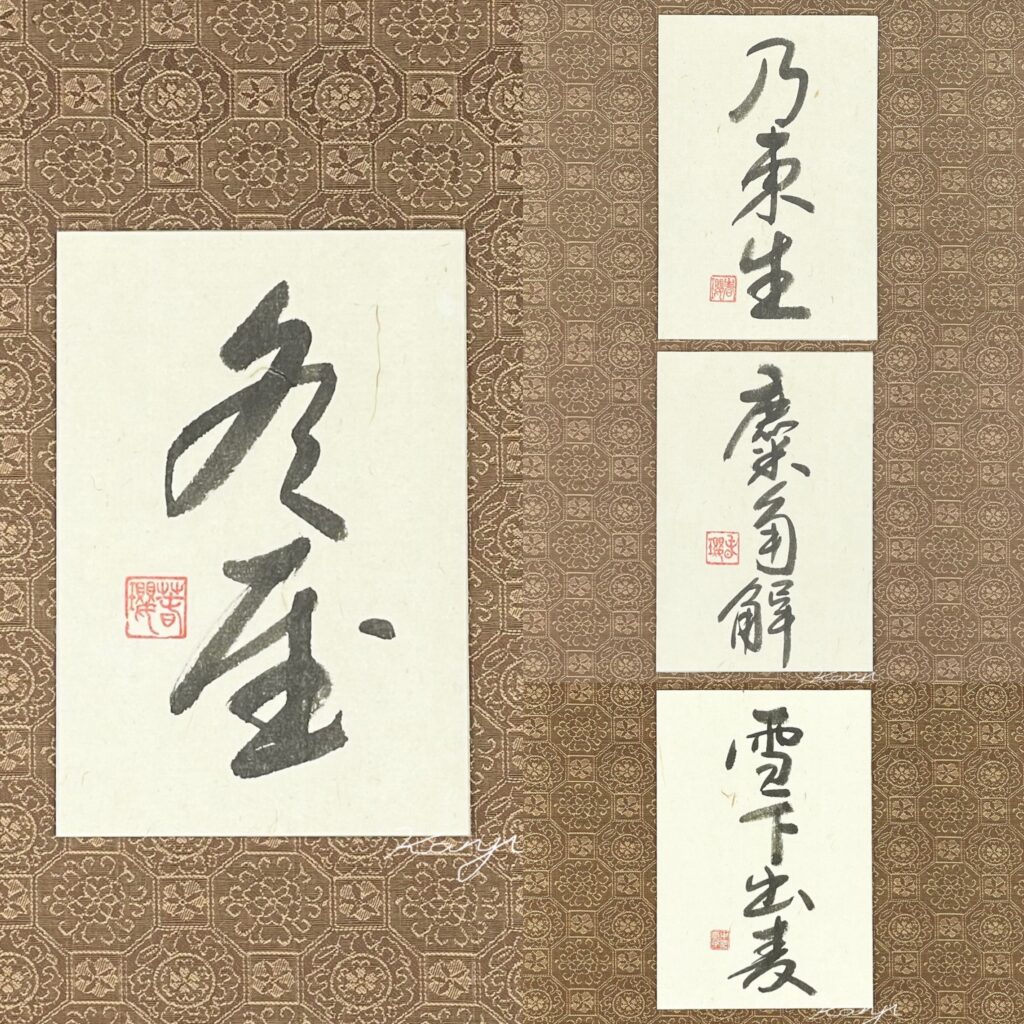 冬至
Kanji
乃東生
麋角解
Kanji
雪下出麦
Kanji